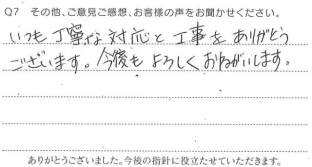 Q7 その他、ご意見ご感想、お客様の声をお聞かせください。
いつも丁寧な対応と工事をありがとう
ございます。今後もよろしくおねがいします。
ありがとうございました。今後の指針に役立たせていただきます。